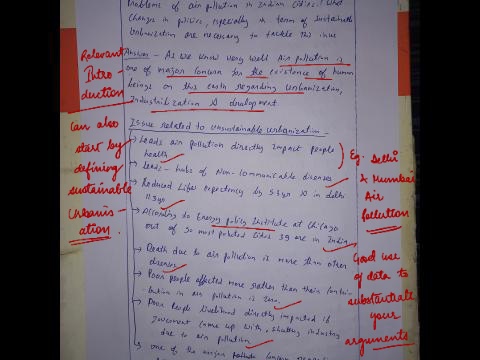 Problems of air pollution in Indian Cities. What
changes in politics, especially in term of sustainable
Urbanization are necessary to tackle this issue
Relevant Intro - duction
Answer - As we know very well Air pollution is
one of major concern for the existence of human
beings on this earth regarding urbanization,
Industrialization & development.
Can also start by defining sustainable Urbanis ation.
Issue related to unsustainable urbanization
→ Leads air pollution directly impact people
health
→ Leads - hubs of Non-communicable diseases
→ Reduced Life expectancy by 5.3 yr & in delhi
11.9 yr
Eg. Delhi & Mumbai Air Pollution
→ According to Energy policy Institute at Chicago
out of 50 most polluted cities 39 are in India
→ Death due to air pollution is more than other
diseases
→ Poor people affected more rather than their contri-
bution in air pollution is zero
→ Poor people livelihood directly impacted if
Government came up with shutting industry
due to air pollution
Good use of data to substantiate your arguments
→ one of the major